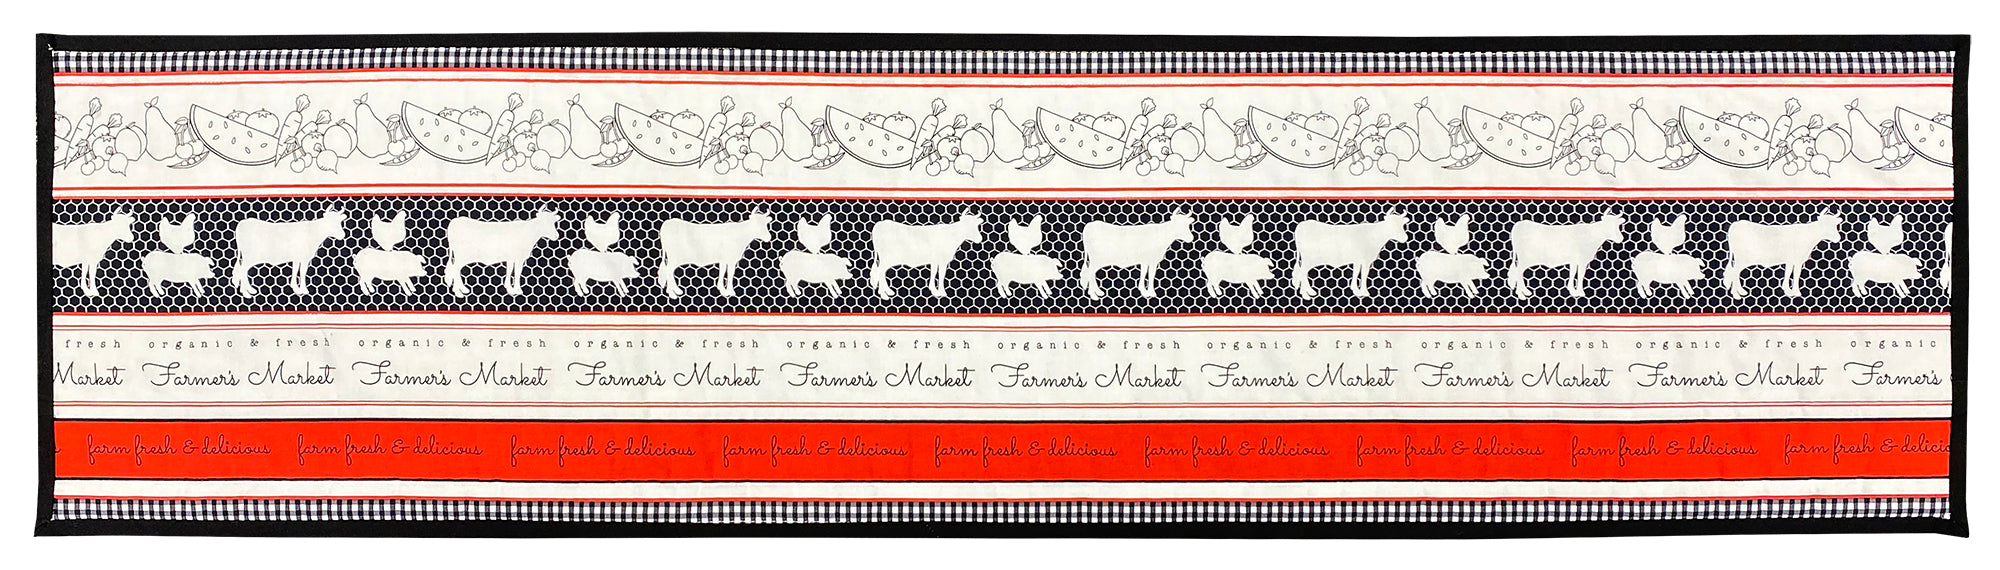 fresh organic & fresh organic & fresh organic & fresh organic & fresh organic & fresh organic & fresh organic & fresh organic & fresh organic
Market Farmer's Market Farmer's Market Farmer's Market Farmer's Market Farmer's Market Farmer's Market Farmer's Market Farmer's Market Farmer's
farm fresh & delicious farm fresh & delicious farm fresh & delicious farm fresh & delicious farm fresh & delicious farm fresh & delicious farm fresh & delicious farm fresh & delicious farm fresh & delicio